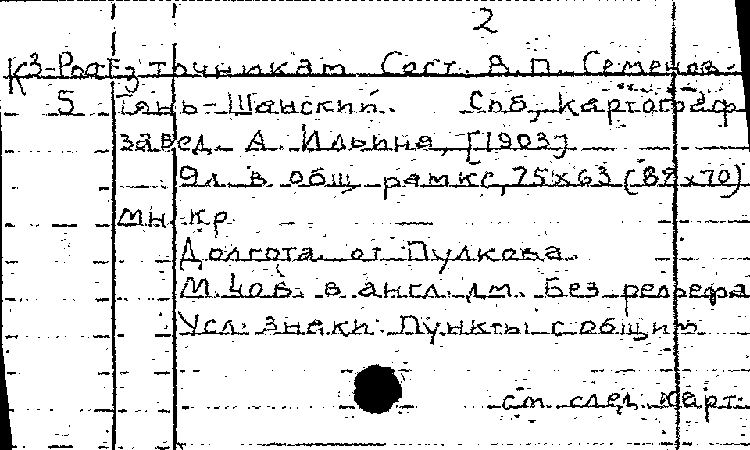 2
К3-Рос Ез точникам Сост. А.П. Семенов-
5 Тянь-Шанский. Спб, картограф
завед. А Ильина, [1903]
9л. в общ рамке, 75х63 (89х70)
мн. кр
Долгота от Пулкова
М. 40 в. в англ. дм. Без рельефа
Усл. знаки. Пункты с общим
см след. карт.